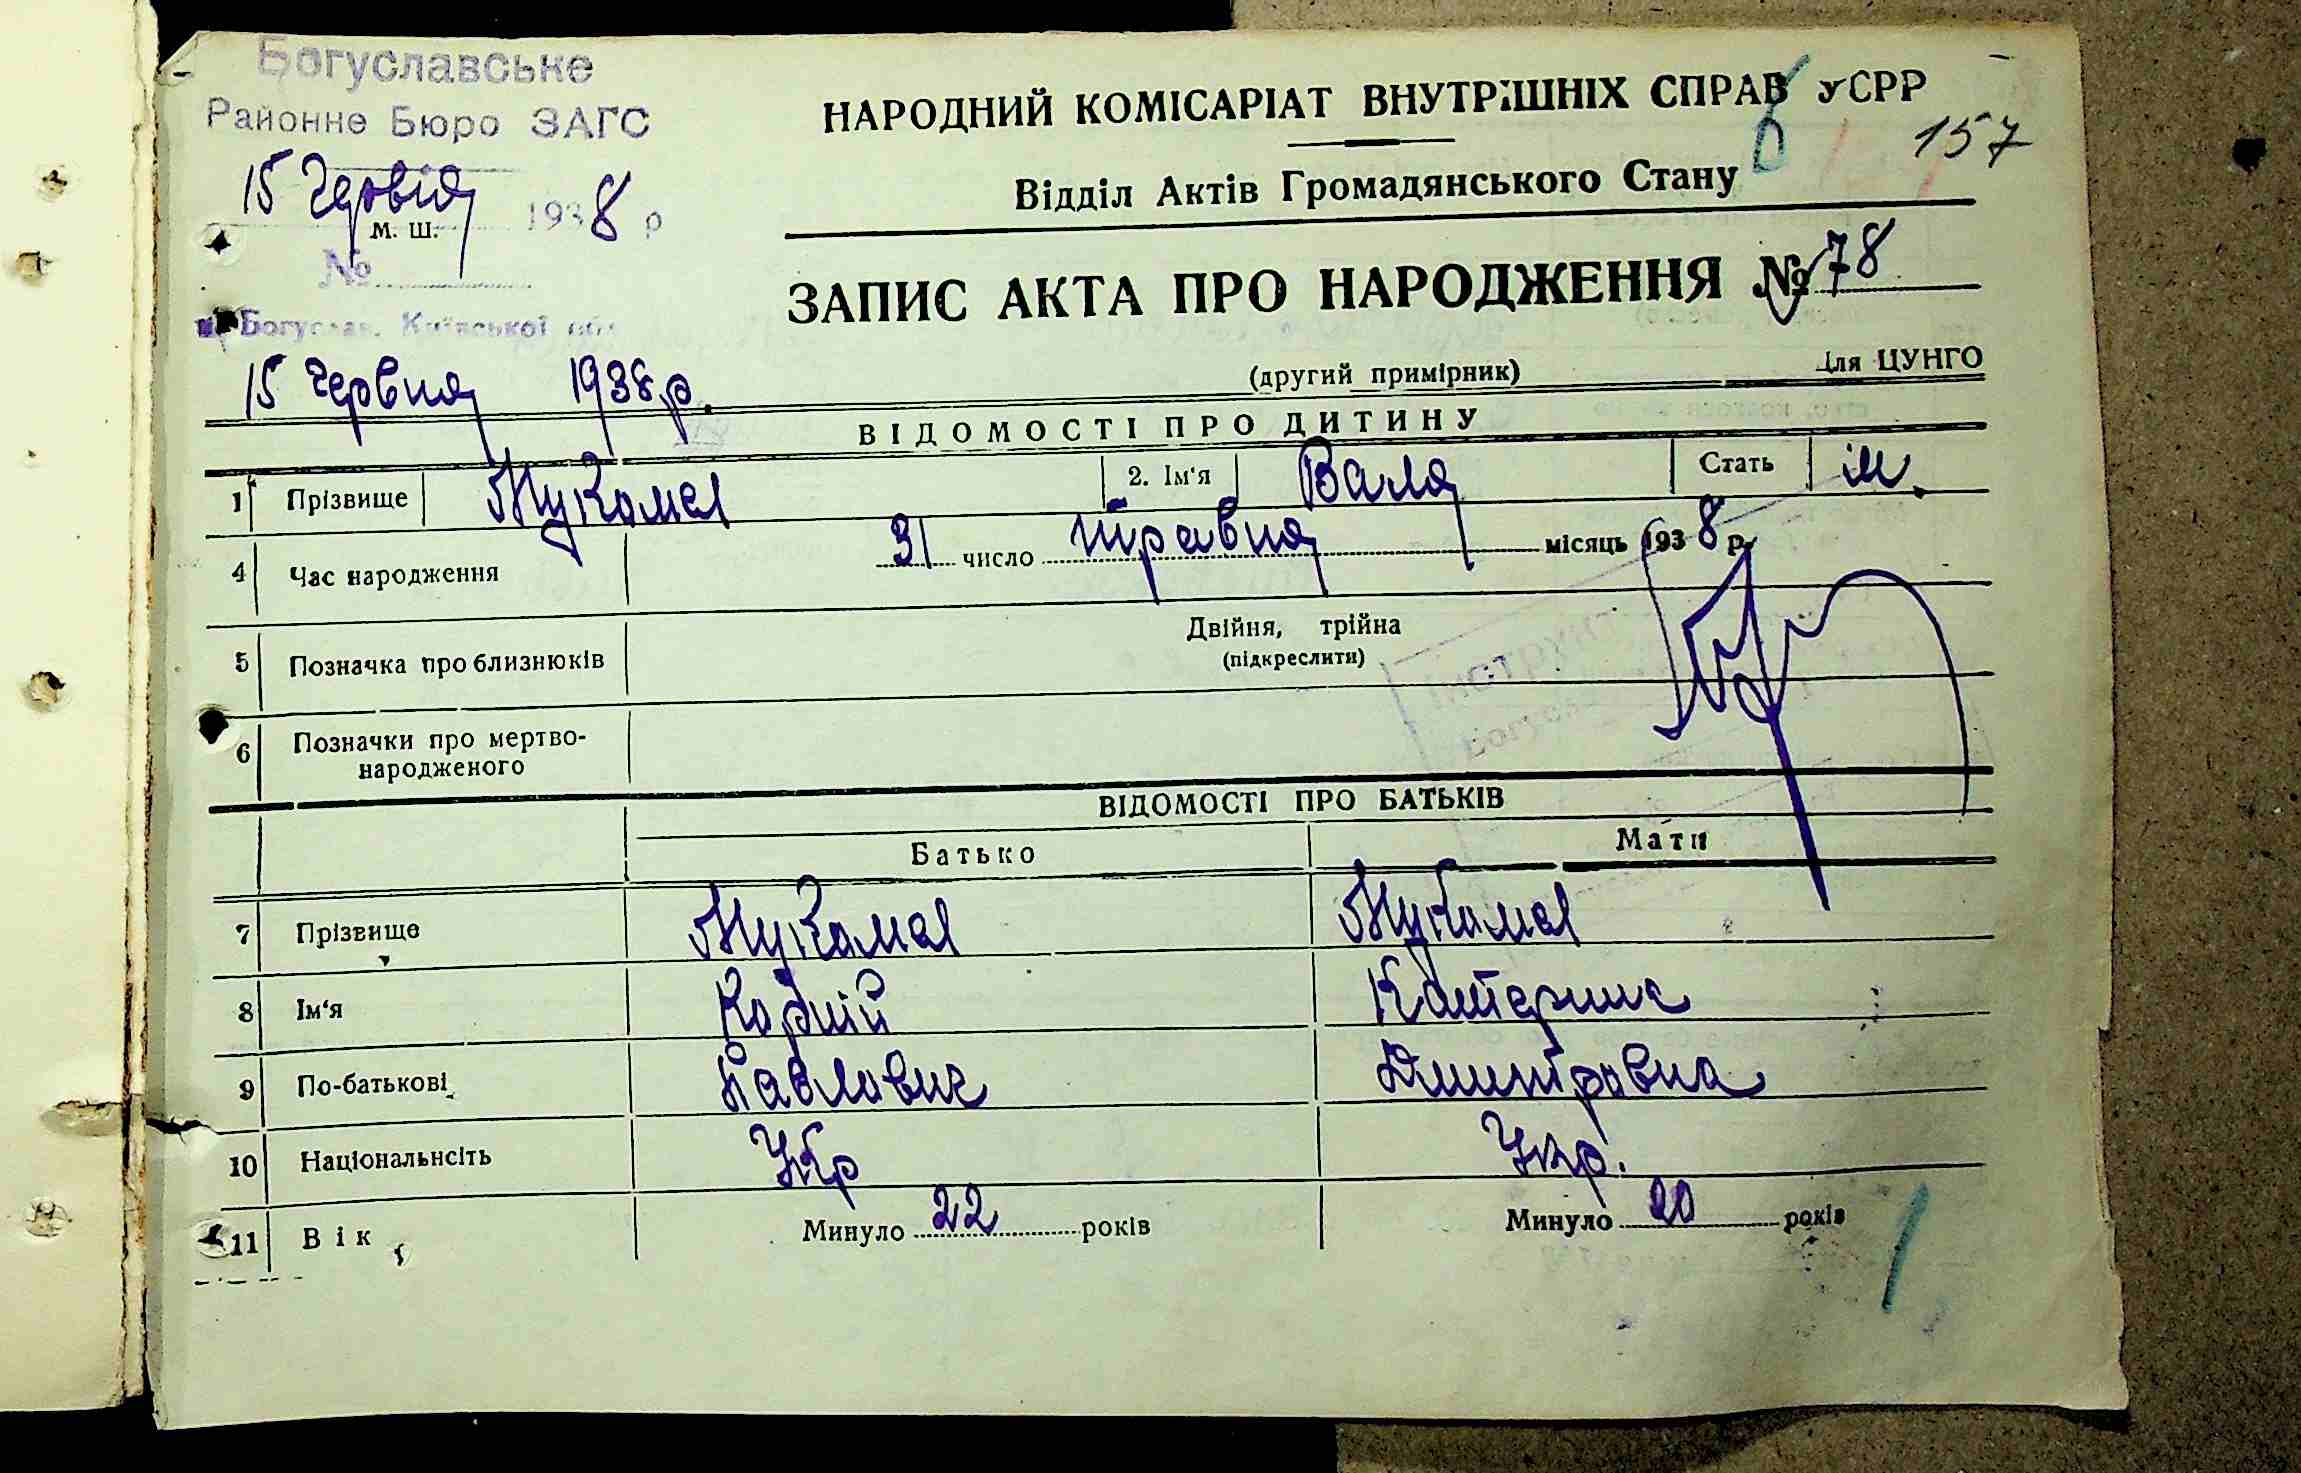 Богуславське
Районне Бюро ЗАГС
15 Червня 1938 р
м. ш.
№
м. Богуслав, Київської обл
15 Червня 1938 р.
НАРОДНИЙ КОМІСАРІАТ ВНУТРІШНІХ СПРАВ УСРР
157
Відділ Актів Громадянського Стану
ЗАПИС АКТА ПРО НАРОДЖЕННЯ № 78
(другий примірник) Для ЦУНГО
ВІДОМОСТІ ПРО ДИТИНУ
1 Прізвище 2. Ім'я Валя Стать
4 Час народження 31 число травня місяць 1938 р.
5 Позначка про близнюків Двійня, трійна
(підкреслити)
6 Позначки про мертво-
народженого
ВІДОМОСТІ ПРО БАТЬКІВ
Батько Мати
7 Прізвище
8 Ім'я Корній Катерина
9 По-батькові Павлович Дмитровна
10 Національнсіть Укр Укр.
11 Вік Минуло 22 років Минуло 20 років